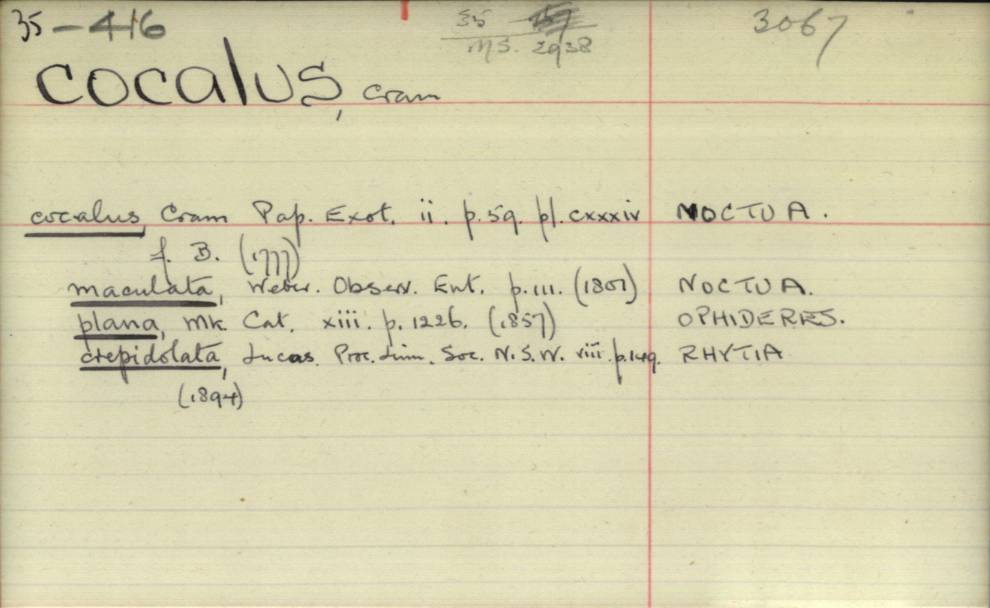 35-416
35
MS. 2938
3067
cocalus, Cram
cocalus, Cram Pap. Exot. ii. p. 59. pl. cxxxiv NOCTUA.
f. B. (1777)
maculata, Weber. Observ. Ent. p. 111. (1801) NOCTUA.
plana, Wlk Cat. xiii. p. 1226. (1857) OPHIDERES.
crepidolata, Lucas. Proc. Linn. Soc. N.S.W. viii. p. 149. RHYTIA
(1894)